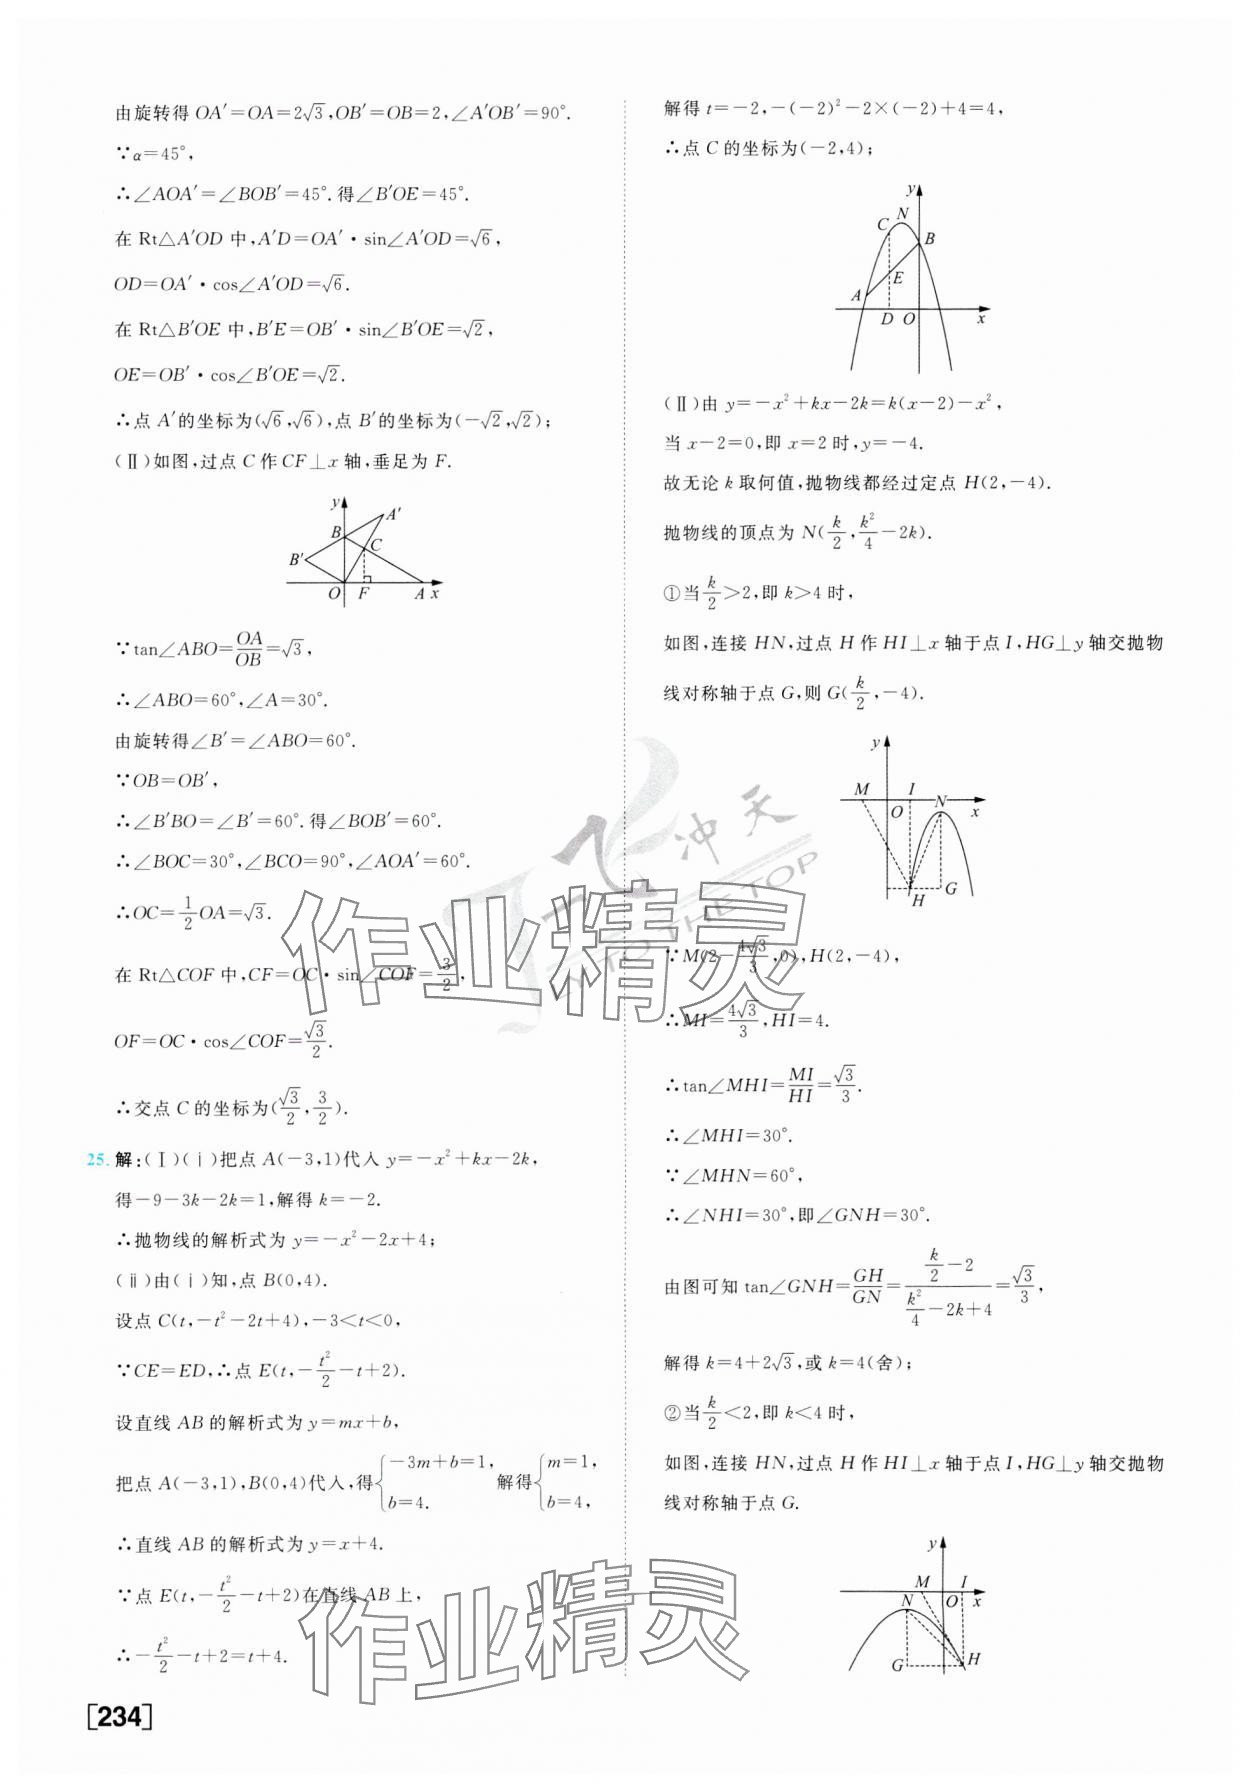 由旋转得 OA′=OA=2√3,OB′=OB=2,∠A′OB′=90°.
∵α=45°,
∴∠AOA′=∠BOB′=45°.得∠B′OE=45°.
在 Rt△A′OD 中,A′D=OA′·sin∠A′OD=√6,
OD=OA′·cos∠A′OD=√6.
在 Rt△B′OE 中,B′E=OB′·sin∠B′OE=√2,
OE=OB′·cos∠B′OE=√2.
∴点 A′的坐标为(√6,√6),点 B′的坐标为(-√2,√2);
(Ⅱ)如图,过点 C 作 CF⊥x 轴,垂足为 F.
y
A′
B
C
B′
O F A x
∵tan∠ABO=OA/OB=√3,
∴∠ABO=60°,∠A=30°.
由旋转得∠B′=∠ABO=60°.
∵OB=OB′,
∴∠B′BO=∠B′=60°.得∠BOB′=60°.
∴∠BOC=30°,∠BCO=90°,∠AOA′=60°.
∴OC=1/2OA=√3.
在 Rt△COF 中,CF=OC·sin∠COF=3/2,
OF=OC·cos∠COF=√3/2.
∴交点 C 的坐标为(√3/2,3/2).
25.解:(Ⅰ)(ⅰ)把点 A(-3,1)代入 y=-x²+kx-2k,
得-9-3k-2k=1,解得 k=-2.
∴抛物线的解析式为 y=-x²-2x+4;
(ⅱ)由(ⅰ)知,点 B(0,4).
设点 C(t,-t²-2t+4),-3<t<0,
∵CE=ED,∴点 E(t,-t²/2-t+2).
设直线 AB 的解析式为 y=mx+b,
把点 A(-3,1),B(0,4)代入,得{-3m+b=1, b=4. 解得{m=1, b=4,
∴直线 AB 的解析式为 y=x+4.
∵点 E(t,-t²/2-t+2)在直线 AB 上,
∴-t²/2-t+2=t+4.
[234]
解得 t=-2,-(-2)²-2×(-2)+4=4,
∴点 C 的坐标为(-2,4);
y
C N
B
E
A
D O x
(Ⅱ)由 y=-x²+kx-2k=k(x-2)-x²,
当 x-2=0,即 x=2 时,y=-4.
故无论 k 取何值,抛物线都经过定点 H(2,-4).
抛物线的顶点为 N(k/2,k²/4-2k).
①当k/2>2,即 k>4 时,
如图,连接 HN,过点 H 作 HI⊥x 轴于点 I,HG⊥y 轴交抛物
线对称轴于点 G,则 G(k/2,-4).
y
M I N
O x
H G
∵M(2-4√3/3,0),H(2,-4),
∴MI=4√3/3,HI=4.
∴tan∠MHI=MI/HI=√3/3.
∴∠MHI=30°.
∵∠MHN=60°,
∴∠NHI=30°,即∠GNH=30°.
由图可知 tan∠GNH=GH/GN=(k/2-2)/(k²/4-2k+4)=√3/3,
解得 k=4+2√3,或 k=4(舍);
②当k/2<2,即 k<4 时,
如图,连接 HN,过点 H 作 HI⊥x 轴于点 I,HG⊥y 轴交抛物
线对称轴于点 G.
y
M I
N O x
G H
作业精灵
作业精灵
冲天
TO THE TOP